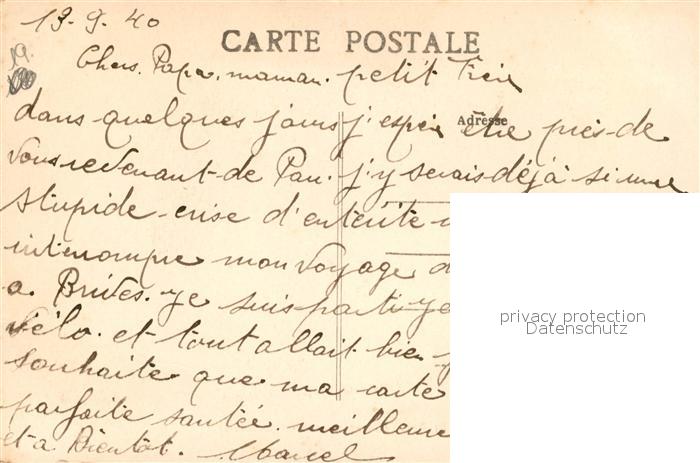 13-9-40
CARTE POSTALE
19.
Chers. Papa. maman. petit Frère
Adresse
dans quelques jours j'espère être près-de
vous revenant-de Pau. j'y serais déjà si une
stupide-crise d'entérite
interrompre mon voyage
a. Brives. je suis parti
vélo. et tout allait bien
souhaite que ma carte
parfaite santée. meilleure
et a Bientot. Marcel
privacy protection
Datenschutz